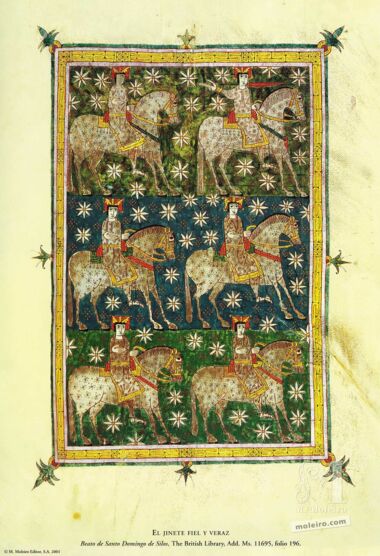 EL JINETE FIEL Y VERAZ
Beato de Santo Domingo de Silos, The British Library, Add. Ms. 11695, folio 196.
© M. Moleiro Editor, S.A. 2001
moleiro.com